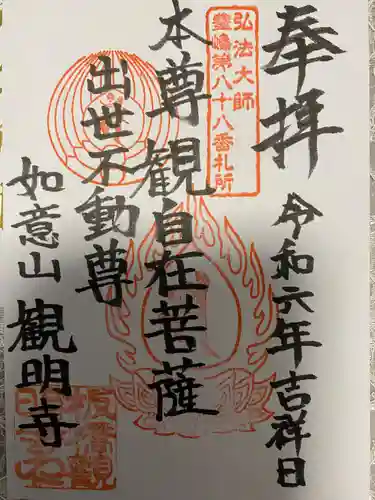 奉拝
令和六年吉祥日
弘法大師
豊嶋第八十八番札所
本尊觀自在菩薩
出世不動尊
如意山觀明寺